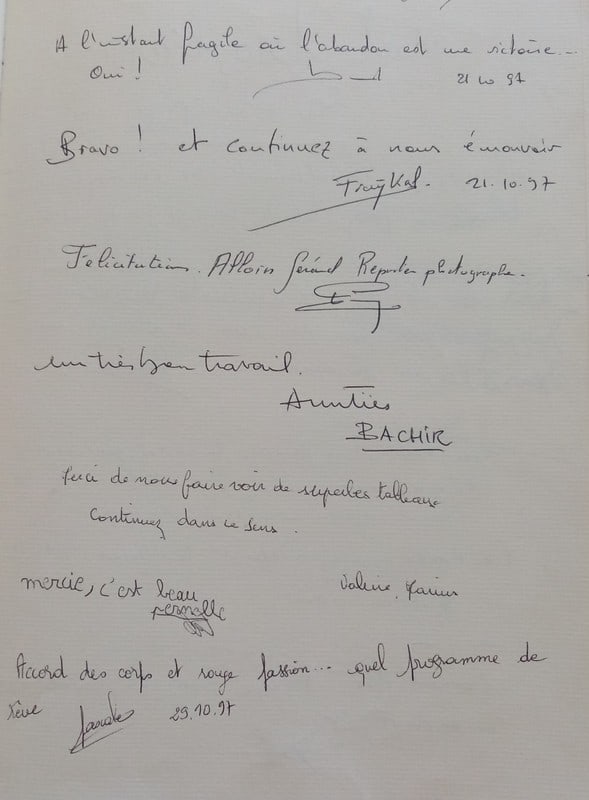 A l'instant fragile où l'abandon est une victoire...
Oui !
21 10 97
Bravo ! et continuez à nous émouvoir
21.10.97
Félicitations. Gérard Reporter photographe.
un très bon travail.
Amitiés
BACHIR
Merci de nous faire voir de superbes tableaux
Continuez dans ce sens.
mercie, c'est beau
Valérie
Accord des corps et rouge passion... quel programme de
rêve
29.10.97